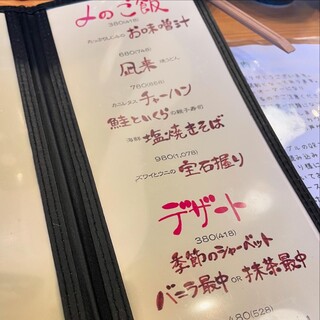 〆のご飯
380(418)
お味噌汁
680(748)
凪来
780(858)
カニレタス チャーハン
鮭といくらの親子寿司
海鮮 塩焼きそば
980(1,078)
ズワイとウニの 宝石握り
デザート
380(418)
季節のシャーベット
バニラ最中 OR 抹茶最中
480(528)